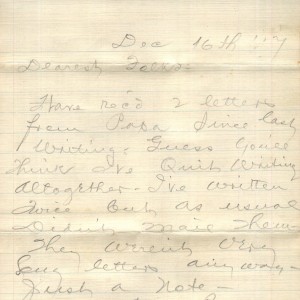 Dec 16th '17
Dearest Folks -
Have rec'd 2 letters
from Papa Since last
Writing. Guess You'll
think I've Quit Writing
altogether. I've written
twice but as usual
Didn't Mail them -
They Weren't Very
long letters any way -
Just a Note -